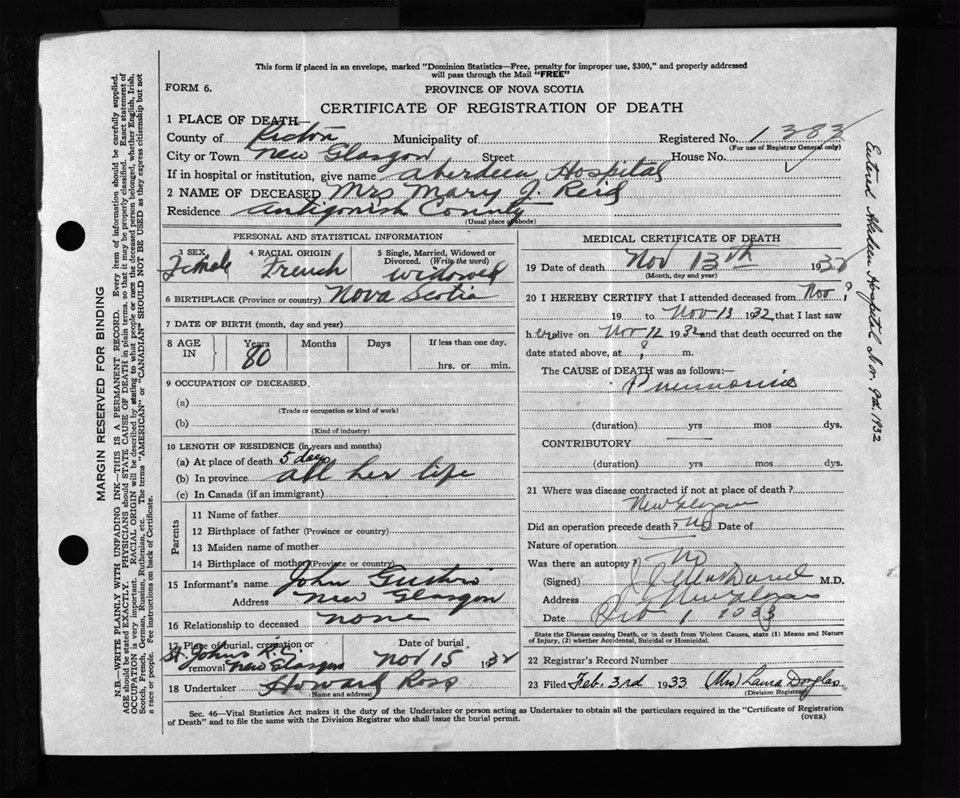 This form if placed in an envelope, marked "Dominion Statistics—Free, penalty for improper use, $300," and properly addressed
will pass through the Mail "FREE"
FORM 6.
PROVINCE OF NOVA SCOTIA
CERTIFICATE OF REGISTRATION OF DEATH
1 PLACE OF DEATH—
County of Pictou Municipality of Registered No. 1383
(For use of Registrar General only)
City or Town New Glasgow Street House No.
If in hospital or institution, give name Aberdeen Hospital
2 NAME OF DECEASED Mrs Mary J. Reid
Residence Antigonish County
(Usual place of abode)
PERSONAL AND STATISTICAL INFORMATION
3 SEX Female
4 RACIAL ORIGIN French
5 Single, Married, Widowed or Divorced. (Write the word) widowed
6 BIRTHPLACE (Province or country) Nova Scotia
7 DATE OF BIRTH (month, day and year)
8 AGE IN Years 80 Months Days If less than one day, hrs. or min.
9 OCCUPATION OF DECEASED
(a)
(Trade or occupation or kind of work)
(b)
(Kind of industry)
10 LENGTH OF RESIDENCE (in years and months)
(a) At place of death 5 days
(b) In province all her life
(c) In Canada (if an immigrant)
Parents
11 Name of father
12 Birthplace of father (Province or country)
13 Maiden name of mother
14 Birthplace of mother (Province or country)
15 Informant's name John
Address New Glasgow
16 Relationship to deceased none
17 Place of burial, cremation or removal St. Johns New Glasgow
Date of burial Nov 15 1932
18 Undertaker Howard Ross
(Name and address)
MEDICAL CERTIFICATE OF DEATH
19 Date of death Nov 13th 1932
(Month, day and year)
20 I HEREBY CERTIFY that I attended deceased from Nov ?
19 to Nov 13 1932, that I last saw
h er alive on Nov 12 1932 and that death occurred on the
date stated above, at ? m.
The CAUSE of DEATH was as follows:
Pneumonia
(duration) yrs mos dys.
CONTRIBUTORY
(duration) yrs mos. dys.
21 Where was disease contracted if not at place of death?
New Glasgow
Did an operation precede death? No Date of
Nature of operation
Was there an autopsy? No
(Signed) M.D.
Address New Glasgow
Date 1933
State the Disease causing Death, or in death from Violent Causes, state (1) Means and Nature
of Injury, (2) whether Accidental, Suicidal or Homicidal.
22 Registrar's Record Number
23 Filed Feb. 3rd 1933 (Mrs) Laura Douglas
(Division Registrar)
Sec. 46—Vital Statistics Act makes it the duty of the Undertaker or person acting as Undertaker to obtain all the particulars required in the "Certificate of Registration
of Death" and to file the same with the Division Registrar who shall issue the burial permit.
(OVER)
MARGIN RESERVED FOR BINDING
N.B.—WRITE PLAINLY WITH UNFADING INK—THIS IS A PERMANENT RECORD. Every item of information should be carefully supplied.
AGE should be stated EXACTLY. PHYSICIANS should STATE CAUSE OF DEATH in plain terms, so that it may be properly classified. Exact statement of
OCCUPATION is very important. RACIAL ORIGIN will be described by stating to what people or race the deceased person belonged, whether English, Irish,
Scotch, French, German, Russian, Ruthenian, etc. The terms "AMERICAN" or "CANADIAN" SHOULD NOT BE USED as they express citizenship but not
a race or people. See instructions on back of Certificate.
Entered Aberdeen Hospital Nor. 9d. 1932